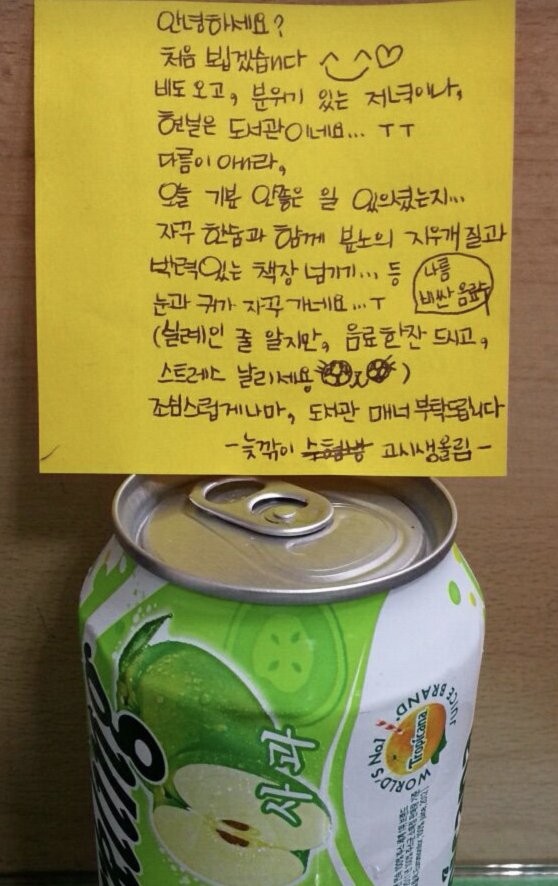 안녕하세요?
처음 뵙겠습니다 ^‿^♡
비도 오고, 분위기 있는 저녁이나,
현실은 도서관이네요... ㅜㅜ
다름이 아니라,
오늘 기분 안좋은 일 있으셨는지...
자꾸 한숨과 함께 분노의 지우개 질과
박력있는 책장 넘기기... 등
눈과 귀가 자꾸 가네요...ㅜ
나름
비싼 음료수
(실례인 줄 알지만, 음료한잔 드시고,
스트레스 날리세용)
조심스럽게나마, 도서관 매너 부탁드립니다
-늦깎이 수험생 고시생올림-
사과
WORLD'S No.1 JUICE BRAND.
Tropicana